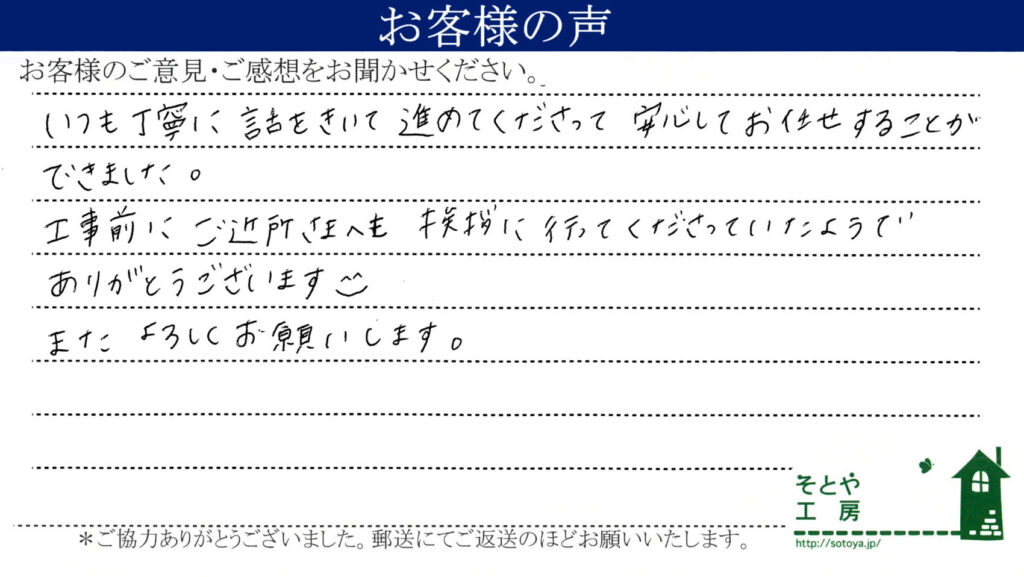 お客様の声
お客様のご意見・ご感想をお聞かせください。
いつも丁寧に話をきいて進めてくださって安心してお任せすることが
できました。
工事前にご近所さまへも挨拶に行ってくださっていたようで
ありがとうございます
また よろしくお願いします。
そとや
工房
http://sotoya.jp/
＊ご協力ありがとうございました。郵送にてご返送のほどお願いいたします。